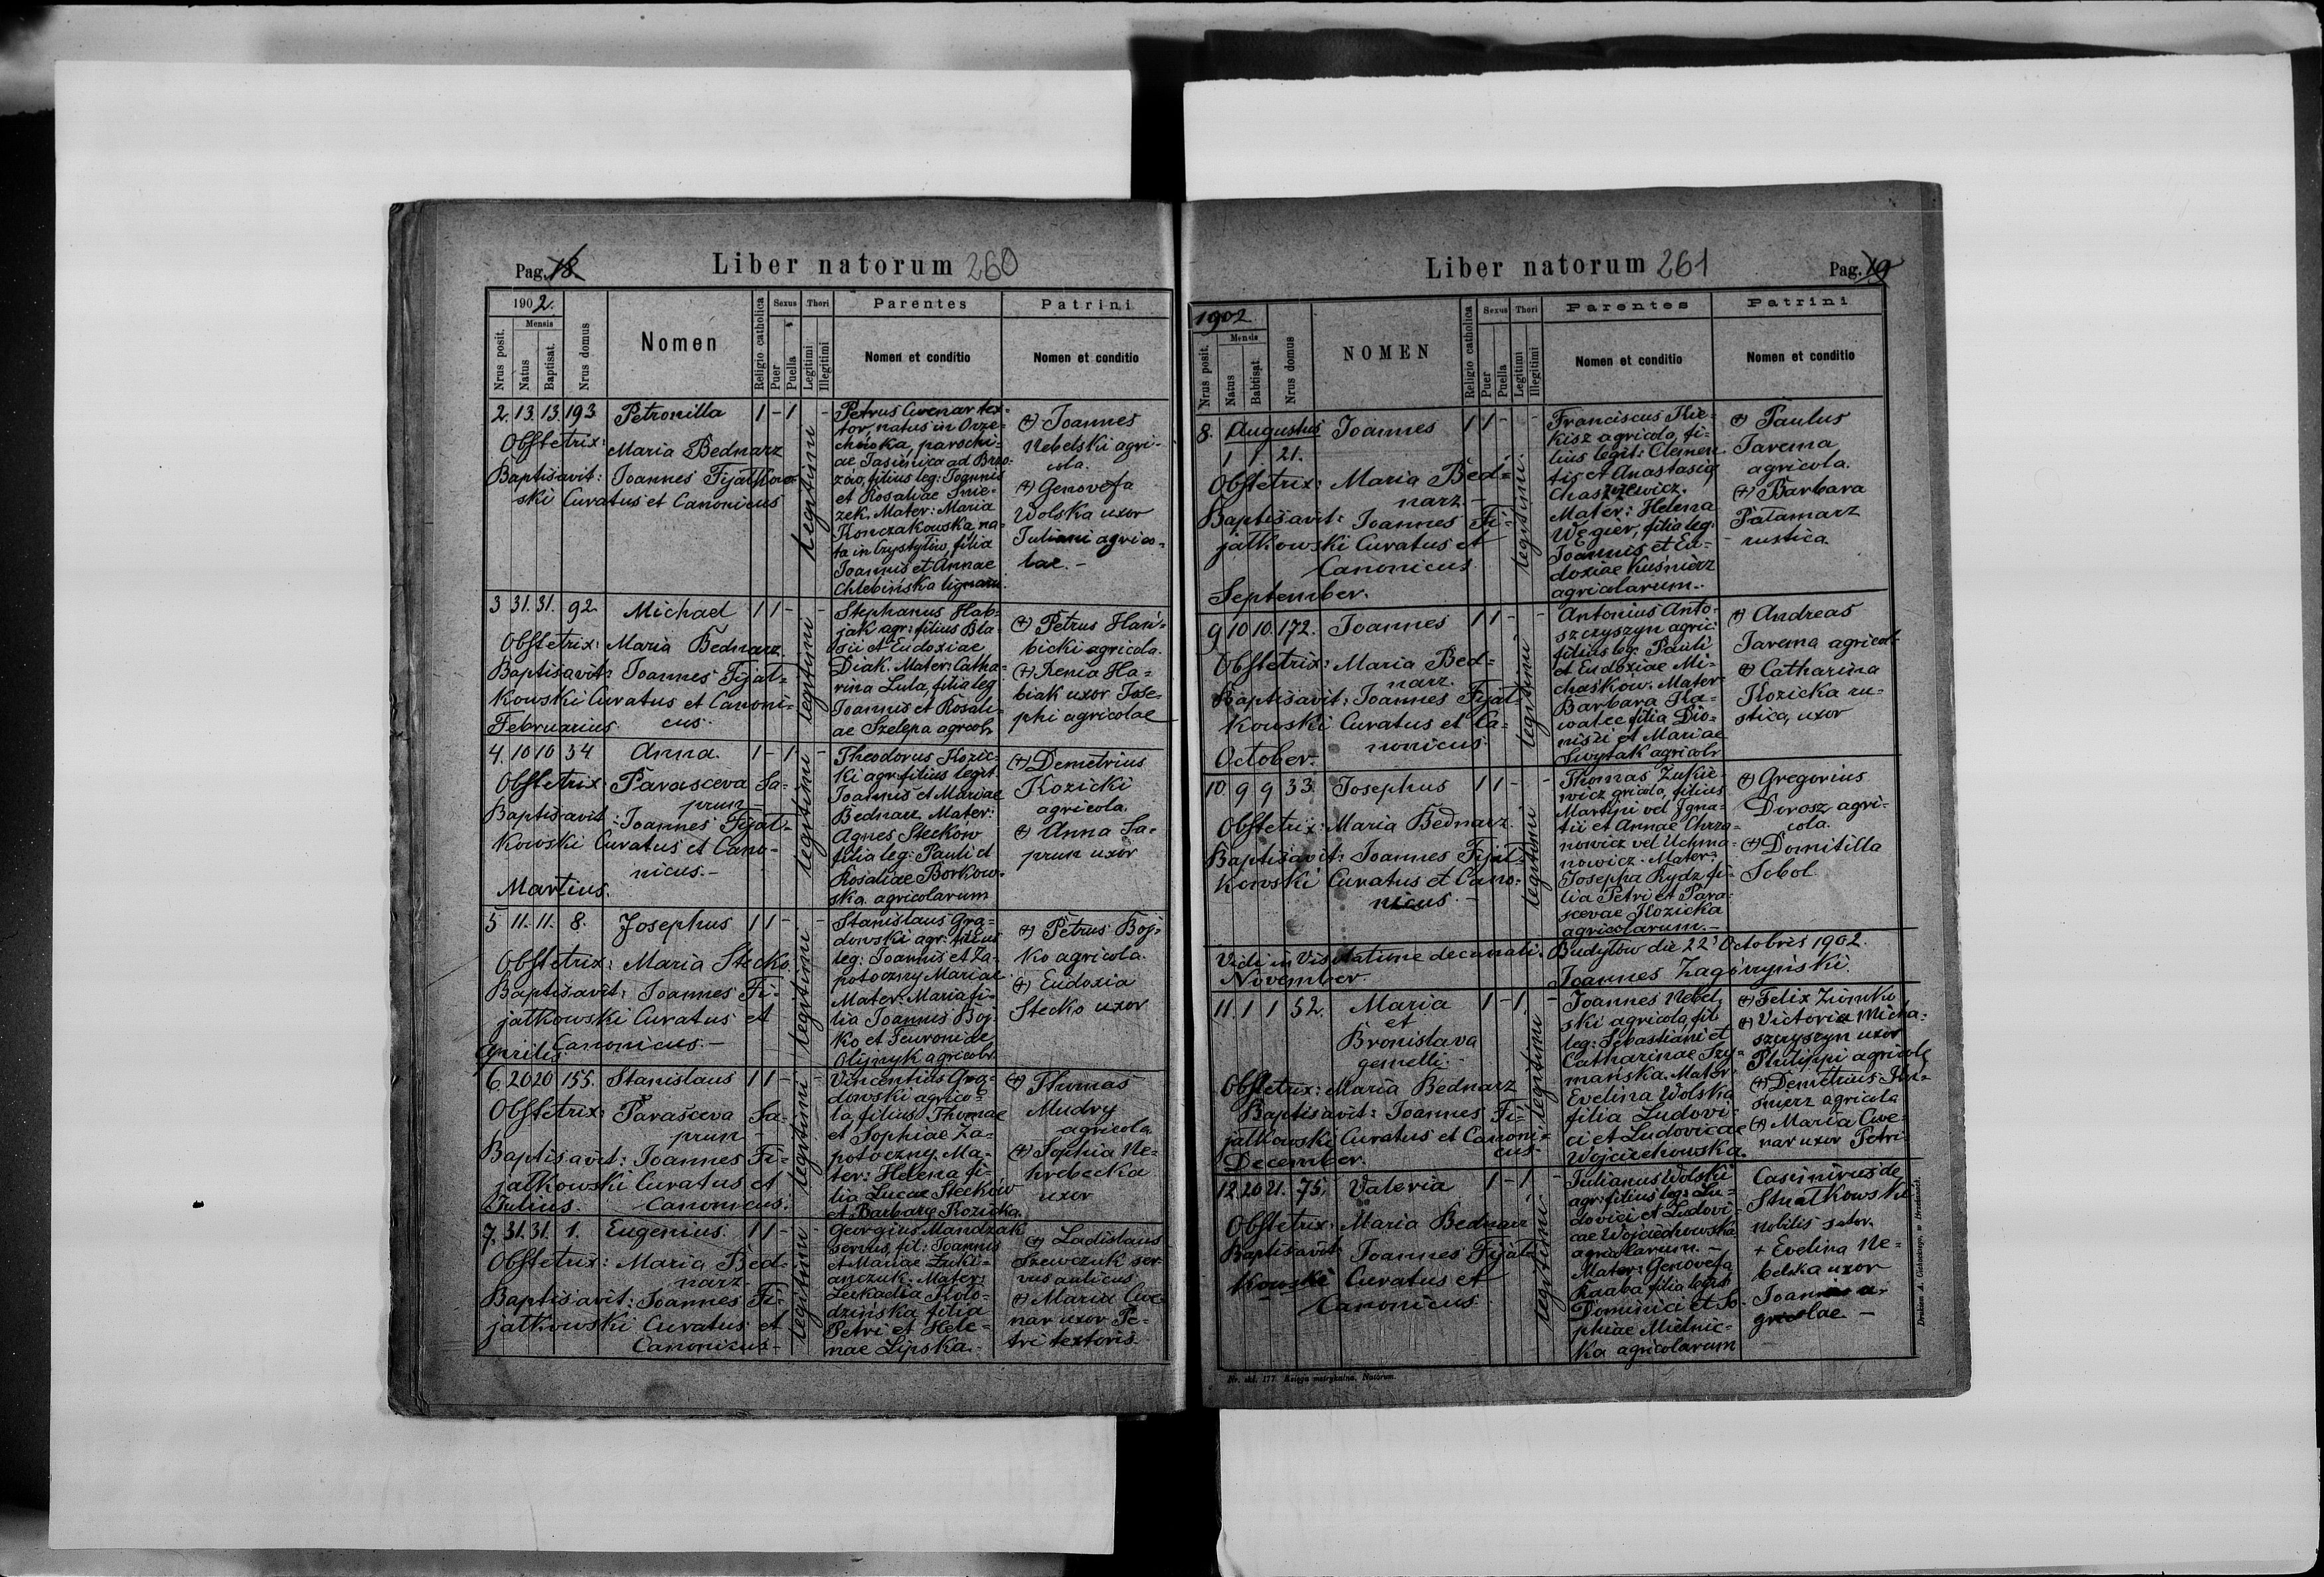 Pag. 18
Liber natorum 260
1902.
Mensis
Nrus posit.
Natus
Baptisat.
Nrus domus
Nomen
Religio catholica
Sexus
Puer
Puella
Thori
Legitimi
Illegitimi
Parentes
Nomen et conditio
Patrini
Nomen et conditio
2. 13. 13. 193 Petronilla 1 - 1 -
Obstetrix: Maria Bednarz
Baptisavit: Joannes Fijałkow-
ski Curatus et Canonicus
legitimi
Petrus Cwenar tex-
tor, natus in Orze-
chówka, parochi-
ae Jasienica ad Brzo-
zów, filius leg: Joannis
et Rosaliae Śnie-
żek. Mater: Maria
Konczakowska na-
ta in Czystyłów, filia
Joannis et Annae
Chlebińska lignar.
(+) Joannes
Nebelski agri-
cola.
(+) Genovefa
Wolska uxor
Juliani agrico-
lae. -
3 31. 31. 92. Michael 1 1 - -
Obstetrix: Maria Bednarz.
Baptisavit: Joannes Fijał-
kowski Curatus et Canoni-
cus.
Februarius
legitimi
Stephanus Hab-
jak agr: filius Bla-
sii et Eudoxiae
Diak. Mater: Catha-
rina Lula, filia leg.
Joannis et Rosali-
ae Szelepa agricol.
(+) Petrus Hań-
bicki agricola.
(+) Xenia Ha-
biak uxor Jose-
phi agricolae
4. 10 10 34 Anna. 1 - 1 -
Obstetrix: Parasceva Sa-
prun
Baptisavit: Joannes Fijał-
kowski Curatus et Cano-
nicus. -
Martius.
legitimi
Theodorus Kozic-
ki agr: filius legit.
Joannis et Mariae
Bednarz Mater:
Agnes Stecków
filia leg: Pauli et
Rosaliae Borkow-
ska agricolarum
(+) Demetrius
Kozicki
agricola.
(+) Anna Sa-
prun uxor
5 11. 11. 8. Josephus 1 1 - -
Obstetrix: Maria Stecko.
Baptisavit: Joannes Fi-
jałkowski Curatus et
Canonicus. -
Aprilis
legitimi
Stanislaus Gra-
dowski agr: filius
leg: Joannis et Za-
potoczny Mariae
Mater: Maria fi-
lia Joannis Boj-
ko et Feuroniae
Olijnyk agricol.
(+) Petrus Boj-
ko agricola.
(+) Eudoxia
Stecko uxor
6. 20 20 155. Stanislaus 1 1 - -
Obstetrix: Parasceva Sa-
prun
Baptisavit: Joannes Fi-
jałkowski Curatus et
Canonicus.
Julius.
legitimi
Vincentius Gra-
dowski agrico-
la filius Thomae
et Sophiae Za-
potoczny. Ma-
ter: Helena fi-
lia Lucae Stecków
et Barbarae Kozicka.
(+) Thomas
Mudry
agricola
(+) Sophia Ne-
hrebecka
uxor
7. 31. 31. 1. Eugenius. 1 1 - -
Obstetrix: Maria Bed-
narz
Baptisavit: Joannes Fi-
jałkowski Curatus et
Canonicus -
legitimi
Georgius Mandzak
servus, fil: Joannis
et Mariae Łuki-
anczuk. Mater:
Leokadia Koło-
dzińska filia
Petri et Hele-
nae Lipska. -
(+) Ladislaus
Szewczuk ser-
vus aulicus
(+) Maria Cwe-
nar uxor Pe-
tri textoris
Liber natorum 261
Pag. 19
1902
Mensis
Nrus posit.
Natus
Babtisat.
Nrus domus
NOMEN
Religio catholica
Sexus
Puer
Puella
Thori
Legitimi
Illegitimi
Parentes
Nomen et conditio
Patrini
Nomen et conditio
8. Augustus Joannes 1 1 - -
1 1. 21.
Obstetrix: Maria Bed-
narz. -
Baptisavit: Joannes Fi-
jałkowski Curatus et
Canonicus
September.
legitimi.
Franciscus
kisz agricola, fi-
lius legit: Clemen-
tis et Anastasiae
Mater: Helena
Węgier, filia leg:
Joannis et Eu-
doxiae Kuśnierz
agricolarum. -
(+) Paulus
Jarema
agricola.
(+) Barbara
Pałamarz
rustica.
9 10 10. 172. Joannes 1 1 - -
Obstetrix: Maria Bed-
narz.
Baptisavit: Joannes Fijał-
kowski Curatus et Ca-
nonicus.
October. -
legitimi
Antonius Anto-
szczyszyn agric:
filius leg: Pauli
et Eudoxiae Mi-
chaśków. Mater
Barbara Ko-
walec filia Dio-
nisii et Mariae
Swytak agricol.
(+) Andreas
Jarema agricol.
(+) Catharina
Kozicka ru-
stica, uxor
10. 9 9 33. Josephus 1 1 - -
Obstetrix: Maria Bednarz.
Baptisavit: Joannes Fijał-
kowski Curatus et Cano-
nicus. -
legitimi
Thomas Żukie-
wicz gricola, filius
Martini vel Igna-
tii et Annae Chrza-
nowicz vel Uchma-
nowicz. Mater:
Josepha Rydz fi-
lia Petri et Para-
scevae Kozicka
agricolarum. -
(+) Gregorius
Dorosz agri-
cola.
(+) Domitilla
Sobol
Vidi in Visitatione decanali. Budyłów die 22 Octobris 1902.
Joannes Zagórzyński.
November.
11. 1 1 52. Maria 1 - 1 -
et
Bronislava
gemelli. -
Obstetrix: Maria Bednarz
Baptisavit: Joannes Fi-
jałkowski Curatus et Canoni-
cus.
December.
legitimi
Joannes Nebel-
ski agricola, fil
leg: Sebastiani et
Catharinae Szy-
mańska. Mater:
Evelina Wolska
filia Ludovi-
ci et Ludovicae
Wojciechowska.
(+) Felix Ziomko
(+) Victoria Micha-
szczyszyn uxor
Philippi agricolae
(+) Demetrius Kuś-
nierz agricola
(+) Maria Cwe-
nar uxor Petri
12. 20 21. 75. Valeria 1 - 1 -
Obstetrix: Maria Bednarz
Baptisavit: Joannes Fijał-
kowski Curatus et
Canonicus.
legitimi
Julianus Wolski
agr: filius leg: Lu-
dovici et Ludovi-
cae Wojciechowska
agricolarum. -
Mater: Genovefa
Raaba filia legit
Dominici et So-
phiae Mielnic-
ka agricolarum
Casimirus de
nobilis
+ Evelina Ne-
belska uxor
Joannis a-
gricolae -
Nr. skł. 177. Księga metrykalna. Natorum.